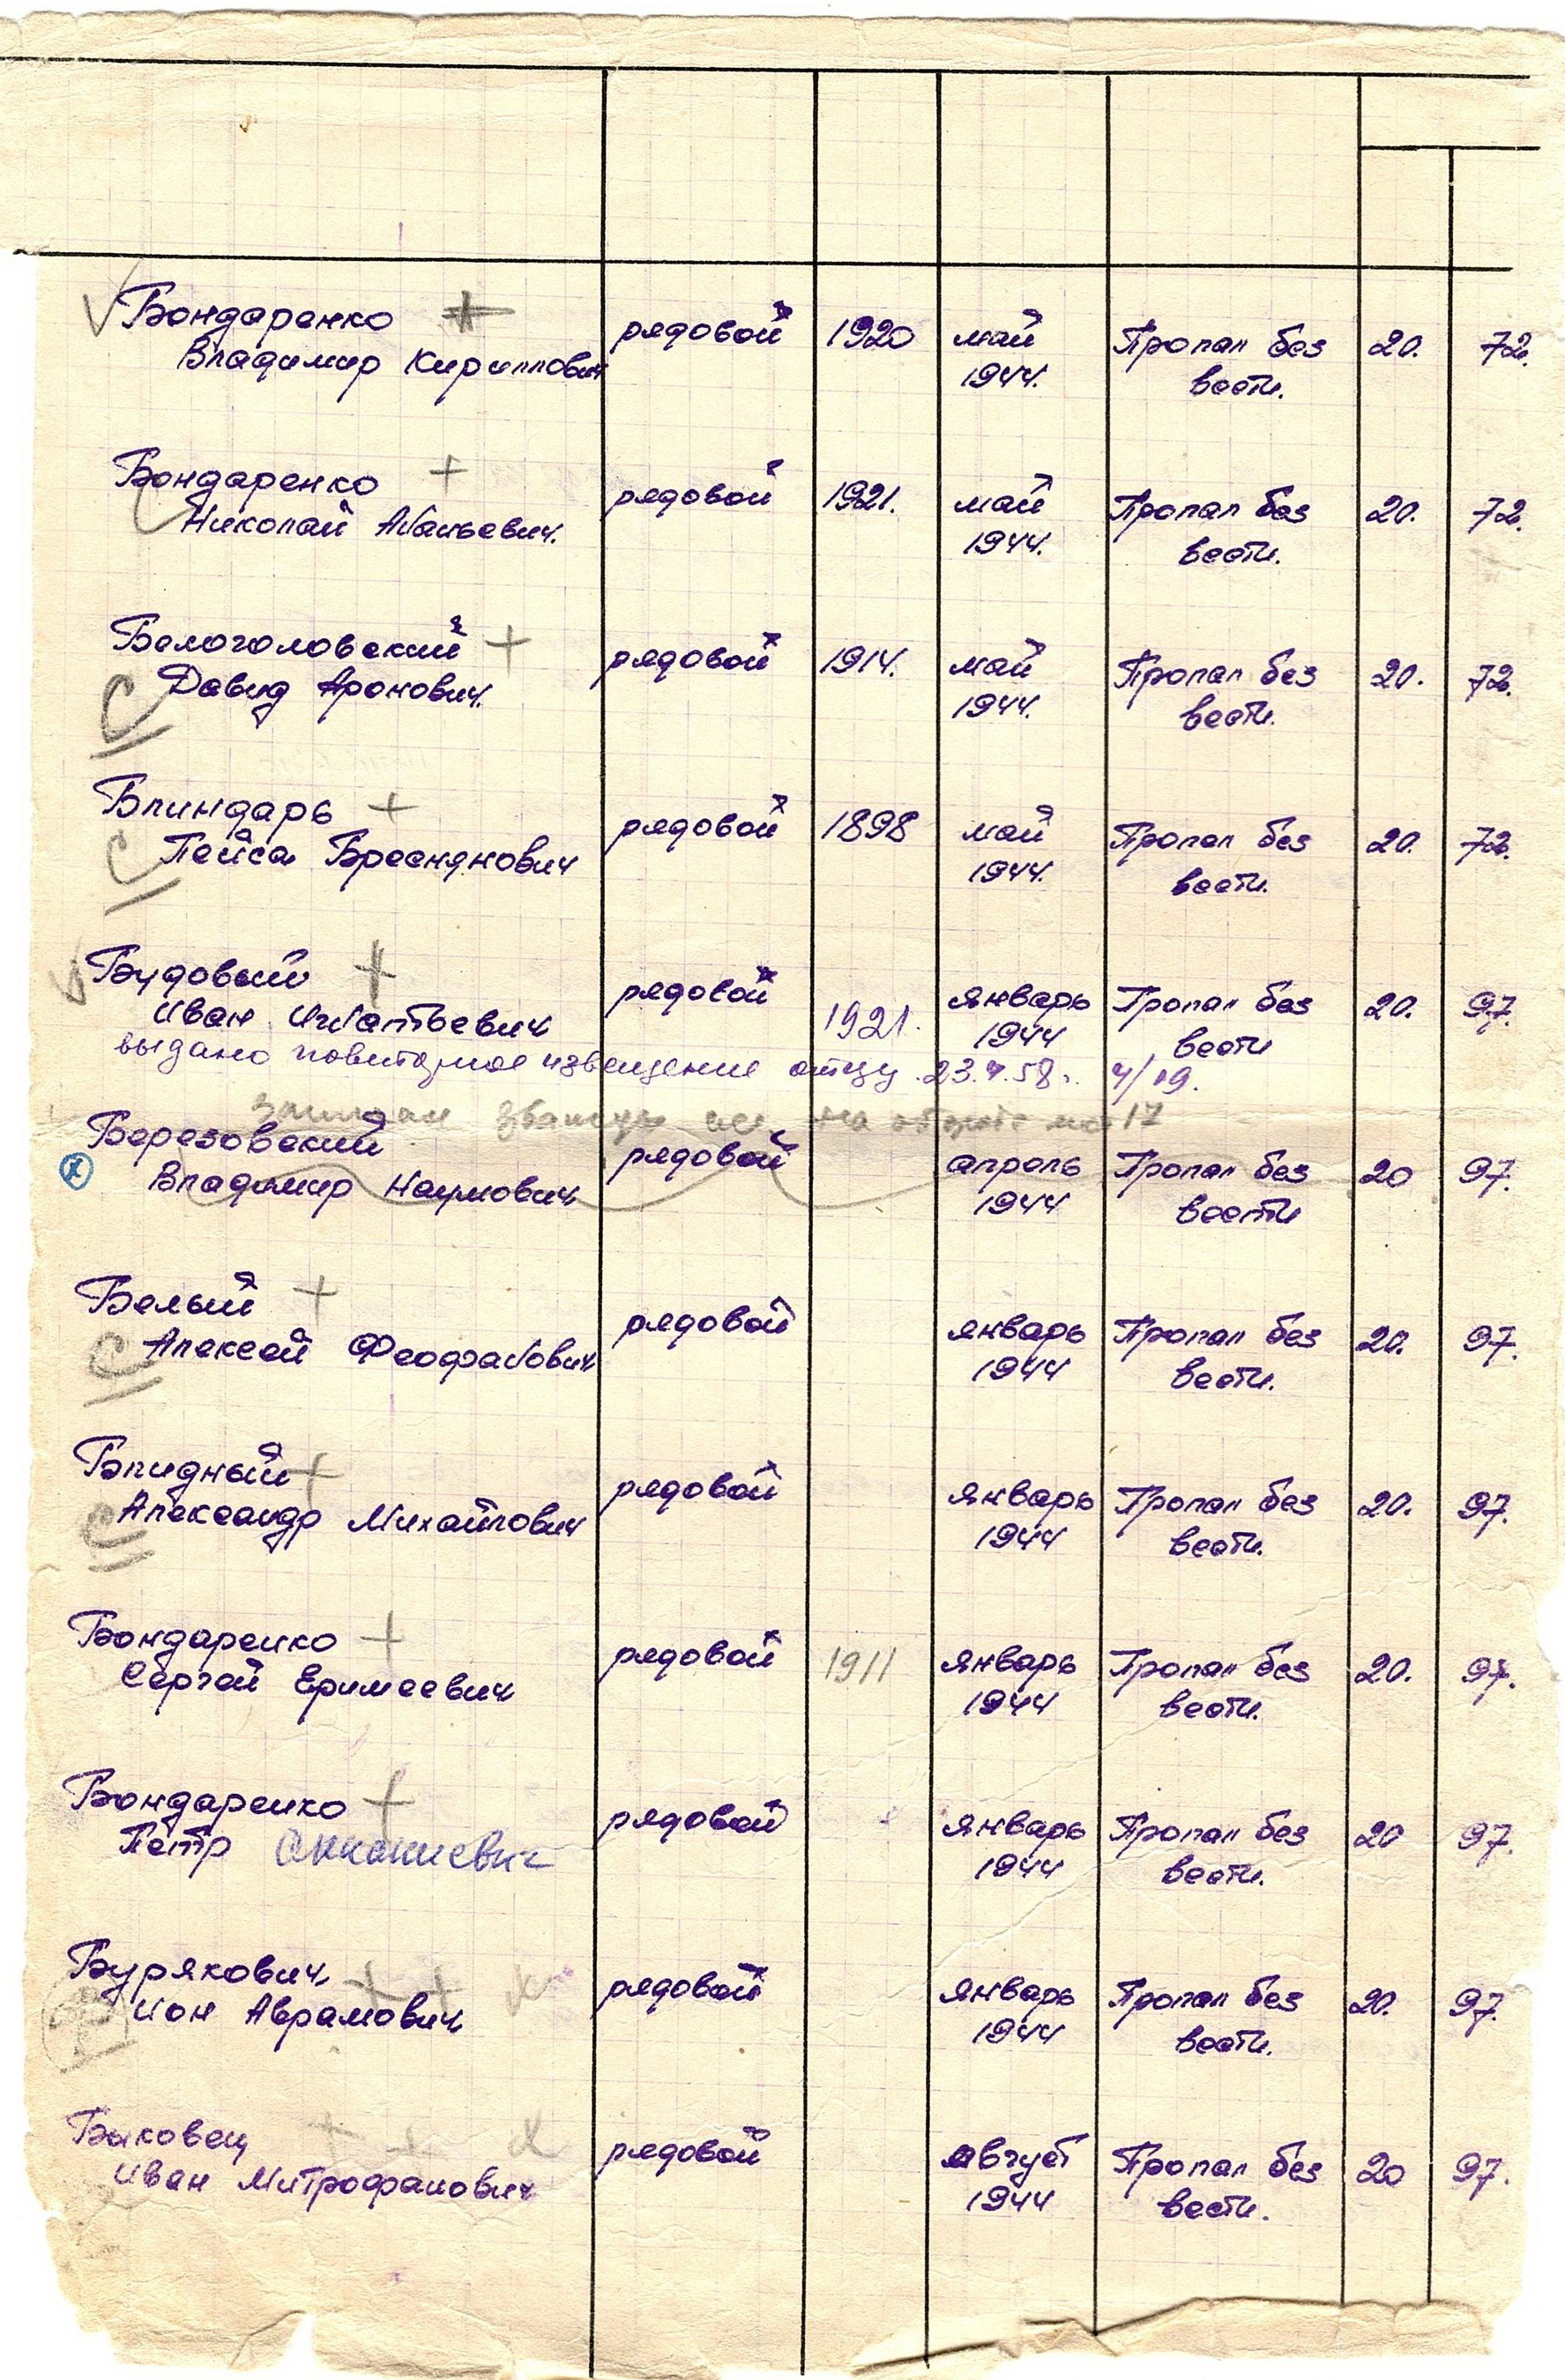 Бондаренко рядовой 1920 май Пропал без 20. 72.
Владимир Кириллович 1944. вести.
Бондаренко рядовой 1921. май Пропал без 20. 72.
Николай 1944. вести.
Белоголовский рядовой 1914. май Пропал без 20. 72.
Давид Аронович. 1944. вести.
Блиндарь рядовой 1898 май Пропал без 20. 72.
Пейса 1944. вести.
Будовый рядовой 1921. январь Пропал без 20. 97.
Иван Игнатьевич 1944 вести
выдано повторное извещение отцу 23.4.58г. 4/19.
Березовский рядовой апрель Пропал без 20 97.
Владимир Наумович 1944 вести
Белый рядовой январь Пропал без 20. 97.
Алексей Феофанович 1944 вести.
Блидный рядовой январь Пропал без 20. 97.
Александр Михайлович 1944 вести.
Бондаренко рядовой 1911 январь Пропал без 20. 97.
Сергей Еримеевич 1944 вести.
Бондаренко рядовой январь Пропал без 20 97.
Петр 1944 вести.
Бурякович рядовой январь Пропал без 20. 97.
Ион Аврамович 1944 вести.
Быковец рядовой август Пропал без 20 97.
Иван Митрофанович 1944 вести.